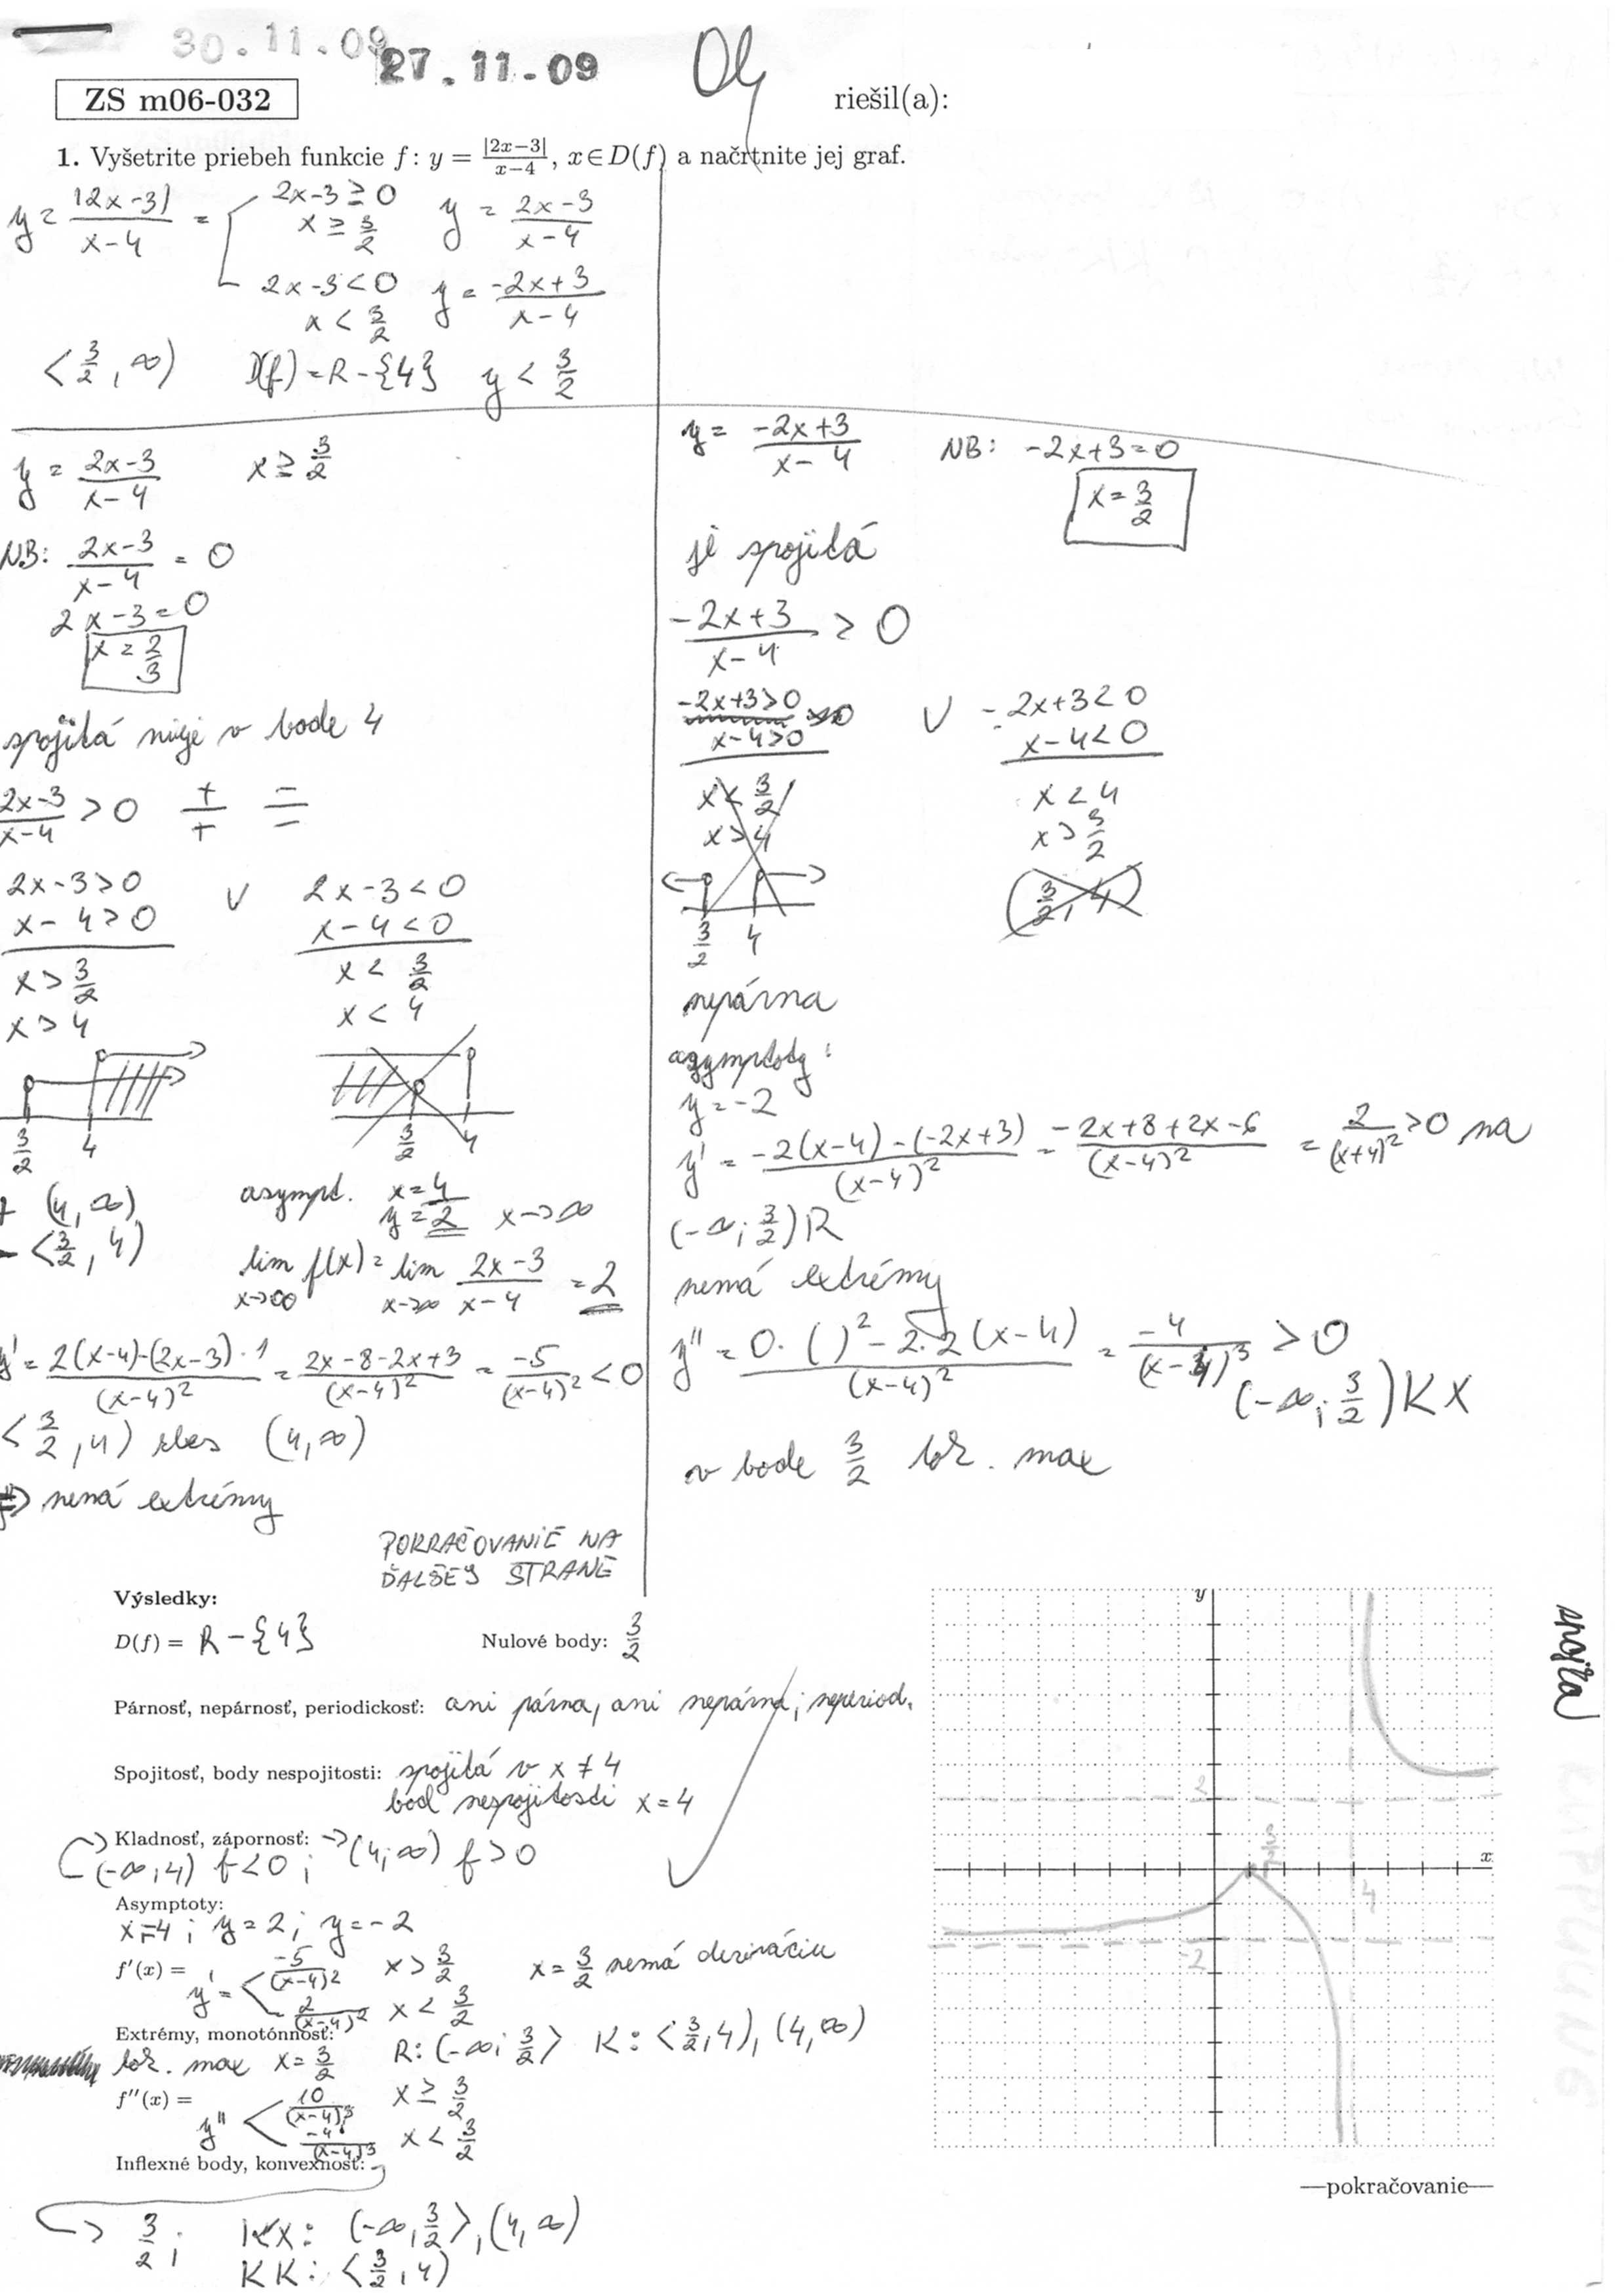 30.11.09
27.11-09
ZS m06-032
riešil(a):
1. Vyšetrite priebeh funkcie f: y = |2x−3|/(x−4), x∈D(f) a načrtnite jej graf.
y = |2x-3|/(x-4) =
2x-3 ≥ 0 y = (2x-3)/(x-4)
x ≥ 3/2
2x-3 < 0 y = (-2x+3)/(x-4)
x < 3/2
<3/2, ∞) D(f) = R - {4} y < 3/2
y = (2x-3)/(x-4) x ≥ 3/2
NB: (2x-3)/(x-4) = 0
2x-3=0
x = 2/3
spojitá nieje v bode 4
(2x-3)/(x-4) > 0 +/+ -/-
2x-3>0 V 2x-3<0
x-4>0 x-4<0
x > 3/2 x < 3/2
x > 4 x < 4
3/2 4 3/2 4
+ (4, ∞)
- <3/2, 4)
asympt. x=4
y=2 x->∞
lim x->∞ f(x) = lim x->∞ (2x-3)/(x-4) = 2
y' = (2(x-4)-(2x-3)·1)/(x-4)² = (2x-8-2x+3)/(x-4)² = -5/(x-4)² < 0
<3/2, 4) kles (4, ∞)
=> nemá extrémy
POKRAČOVANIE NA
ĎALŠEJ STRANE
y = (-2x+3)/(x-4) NB: -2x+3=0
x = 3/2
je spojitá
(-2x+3)/(x-4) > 0
-2x+3>0 V -2x+3<0
x-4>0 x-4<0
x < 3/2 x < 4
x > 4 x > 3/2
3/2 4 (3/2, 4)
nepárna
asymptoty:
y = -2
y' = (-2(x-4)-(-2x+3))/(x-4)² = (-2x+8+2x-6)/(x-4)² = 2/(x+4)² >0 na
(-∞; 3/2) R
nemá extrémy
y'' = (0·( )²-2·2(x-4))/(x-4)² = -4/(x-4)³ > 0
(-∞; 3/2) KX
v bode 3/2 lok. max
Výsledky:
D(f) = R - {4} Nulové body: 3/2
Párnosť, nepárnosť, periodickosť: ani párna, ani nepárna; neperiod.
Spojitosť, body nespojitosti: spojitá v x ≠ 4
bod nespojitosti x=4
Kladnosť, zápornosť: -> (4; ∞) f>0
(-∞; 4) f<0;
Asymptoty:
x=4; y=2; y=-2
f′(x) = y' = < -5/(x-4)² x > 3/2 x = 3/2 nemá deriváciu
2/(x-4)² x < 3/2
Extrémy, monotónnosť:
lok. max x = 3/2 R: (-∞; 3/2> K: <3/2, 4), (4, ∞)
f″(x) =
y'' < 10/(x-4)³ x ≥ 3/2
-4/(x-4)³ x < 3/2
Inflexné body, konvexnosť:
3/2; KX: (-∞, 3/2>, (4, ∞)
KK: <3/2, 4)
y
2
3/2
x
4
-2
—pokračovanie—